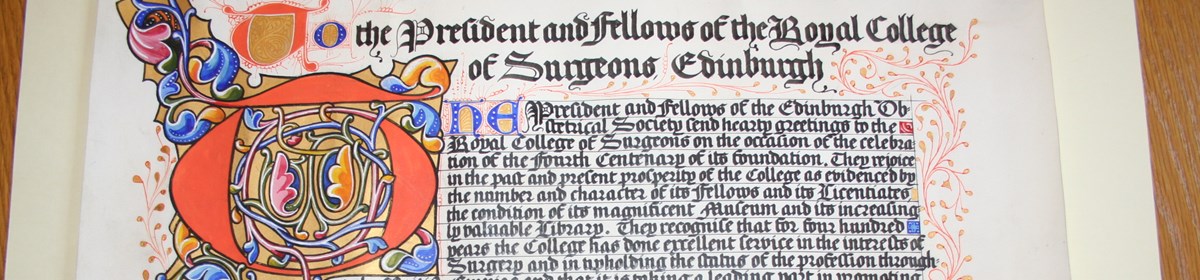 To the President and Fellows of the Royal College
of Surgeons Edinburgh
THE President and Fellows of the Edinburgh Ob-
stetrical Society send hearty greetings to the
Royal College of Surgeons on the occasion of the celebra
tion of the Fourth Centenary of its foundation. They rejoice
in the past and present prosperity of the College as evidenced by
the number and character of its Fellows and its Licentiates
the condition of its magnificent Museum and its increasing
ly valuable Library. They recognise that for four hundred
years the College has done excellent service in the interests of
Surgery and in upholding the status of the profession through-
Empire and that it is taking a leading part in promoting